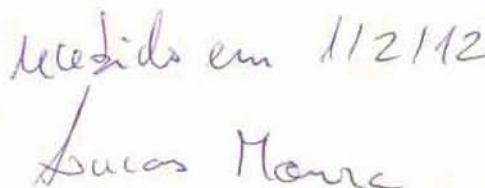 recebido em 1/2/12
Lucas Moura